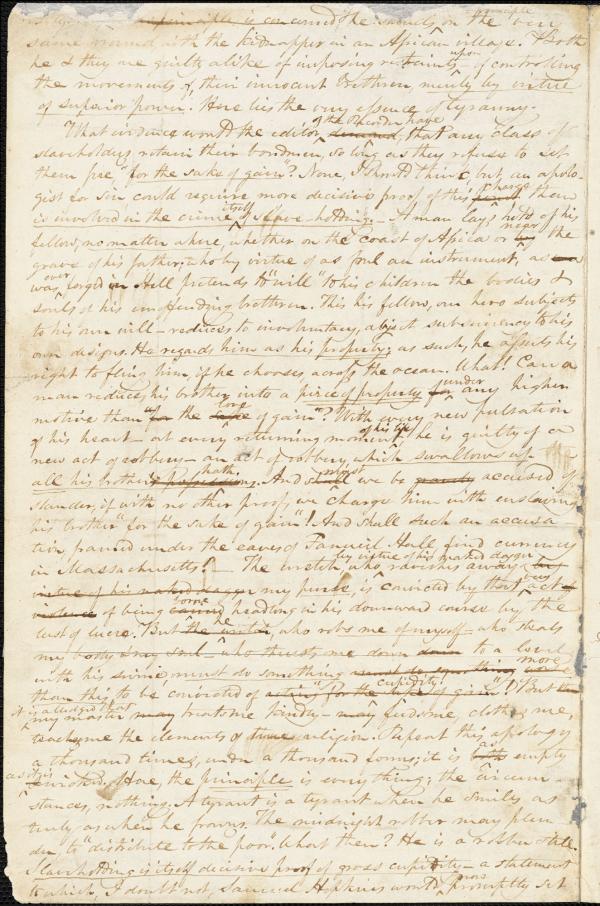 principle is concerned, he stands, on the very
same ground, with the kidnapper in an African village. Both
he & they are guilty alike of imposing restraints upon, of controlling
the movements of, their innocent brethren, merely by virtue
of superior power. Here lies the very essence of tyranny.
What evidence would the editor of the Recorder have, that any class of
slaveholders retain their bondmen, so long as they refuse to set
them free "for the sake of gain"? None, I should think; but, an apolo-
gist for sin could require more decisive proof of this charge than
is involved in the crime itself of slave-holding. – A man lays hold of his
fellow, no matter where, whether on the coast of Africa or near the
grave of his father, who by virtue of as foul an instrument, as
was ever forged in Hell pretends to "will" to his children the bodies &
souls of his unoffending brethren. This his fellow, our hero subjects
to his own will – reduces to involuntary, abject subserviency to his
own designs. He regards him as his property; as such, he affects his
right to fling him, if he chooses across the ocean. What! Can a
man reduce his brother into a piece of property under any higher
motive than the love of gain"? With every new pulsation
of his heart – at every returning moment of his life, he is guilty of a
new act of robbery – an act of robbery, which swallows up
all his brother hath. And must we be accused of
slander, if with no other proof, we charge him with enslaving
his brother "for the sake of gain"! And shall such an accusa
tion, framed under the eaves of Faneuil Hall find currency
in Massachusetts! – The wretch, who ravishes away by virtue of his naked dagger
my purse, is convicted by that act
of being borne headlong in his downward course by the
lust of lucre. But he, who robs me of myself – who steals
my body & my soul – who thrusts me down to a level
with his swine, must do something more
than this to be convicted of cupidity! But
it is alledged that my master treats me kindly – feeds me, clothes me,
teaches me the elements of religion. Repeat this apology
a thousand times, under a thousand forms; it is as empty
as it is wicked. Here, the principle is everything; the circum
stances, nothing. A tyrant is a tyrant when he smiles, as
truly, as when he frowns. The midnight robber may plun
der to "distribute to the poor". What then? He is a robber still.
Slaveholding is itself decisive proof of gross cupidity – a statement
to which, I doubt not, Samuel Hopkins would promptly set